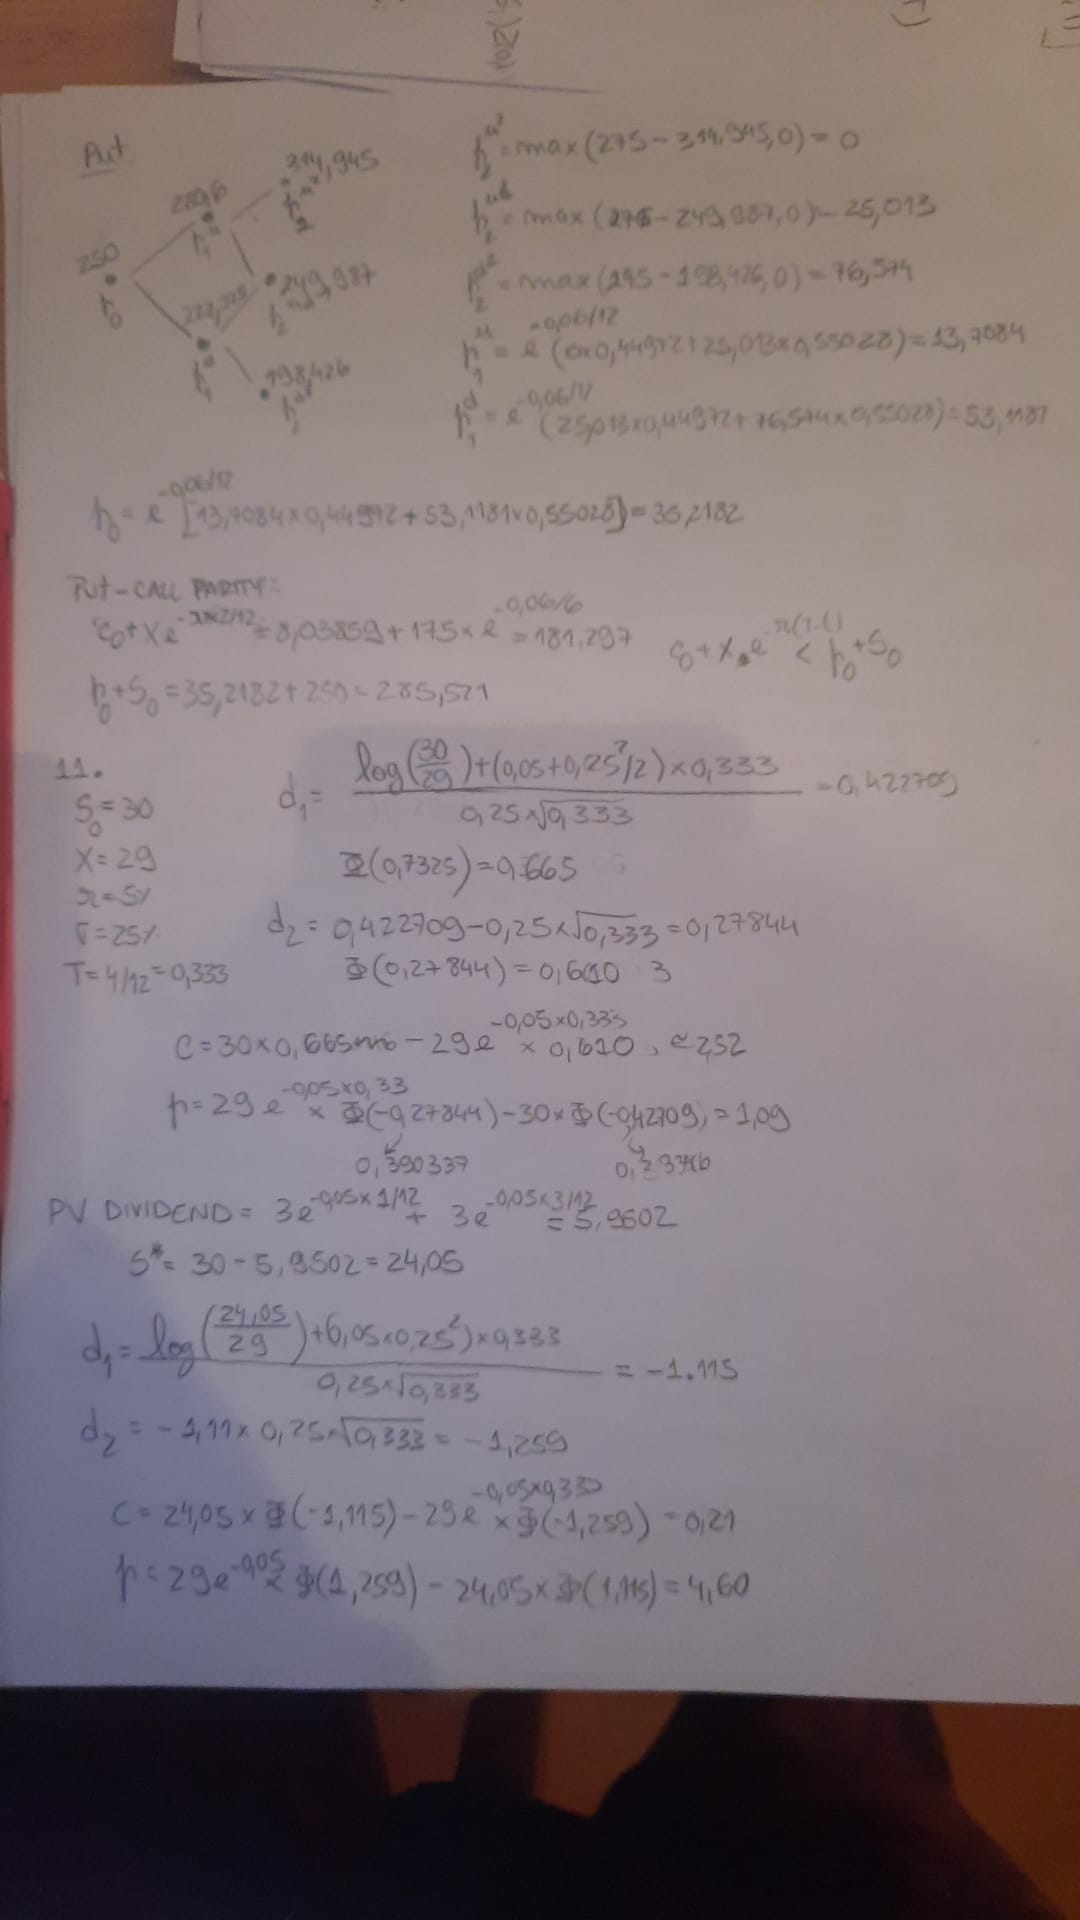 Put
250
280,6
314,945
222,728
249,987
198,426
p₀
p₁ᵘ
p₂ᵘ²
p₂ᵘᵈ
p₁ᵈ
p₂ᵈ²
p₂ᵘ² = max(275-314,945,0) = 0
p₂ᵘᵈ = max(275-249,987,0) = 25,013
= max(275-198,426,0) = 76,574
p₁ᵘ = e^-0,06/12 (0×0,44972+25,013×0,55028) = 13,7084
p₁ᵈ = e^-0,06/12 (25,013×0,44972+76,574×0,55028) = 53,1181
p₀ = e^-0,06/12 [13,7084×0,44972+53,1181×0,55028] = 35,2182
PUT-CALL PARITY:
c₀+Xe = 8,03859+175×e^-0,06/6 = 181,297
c₀+X×e^-r(T-t) < p₀+S₀
p₀+S₀ = 35,2182+250 = 285,521
11.
S₀ = 30
X = 29
r = 5%
σ = 25%
T = 4/12 = 0,333
d₁ = (log(30/29)+(0,05+0,25²/2)×0,333)/(0,25×√0,333) = 0,422709
Φ(0,7325) = 0.665
d₂ = 0,422709-0,25×√0,333 = 0,27844
Φ(0,27844) = 0,610 3
C = 30×0,665 - 29e^-0,05×0,333 × 0,610, ≈ 2,52
p = 29e^-0,05×0,33 × Φ(-0,27844)-30×Φ(-0,42709) = 1,09
0,390337
PV DIVIDEND = 3e^-0,05×1/12 + 3e^-0,05×3/12 = 5,9502
S* = 30-5,9502 = 24,05
d₁ = (log(24,05/29)+(0,05×0,25²)×0,333)/(0,25×√0,333) = -1.115
d₂ = -1,11×0,25×√0,333 = -1,259
C = 24,05×Φ(-1,115)-29e^-0,05×0,333 × Φ(-1,259) = 0,21
p = 29e^-0,05 × Φ(1,259)-24,05×Φ(1,115) = 4,60